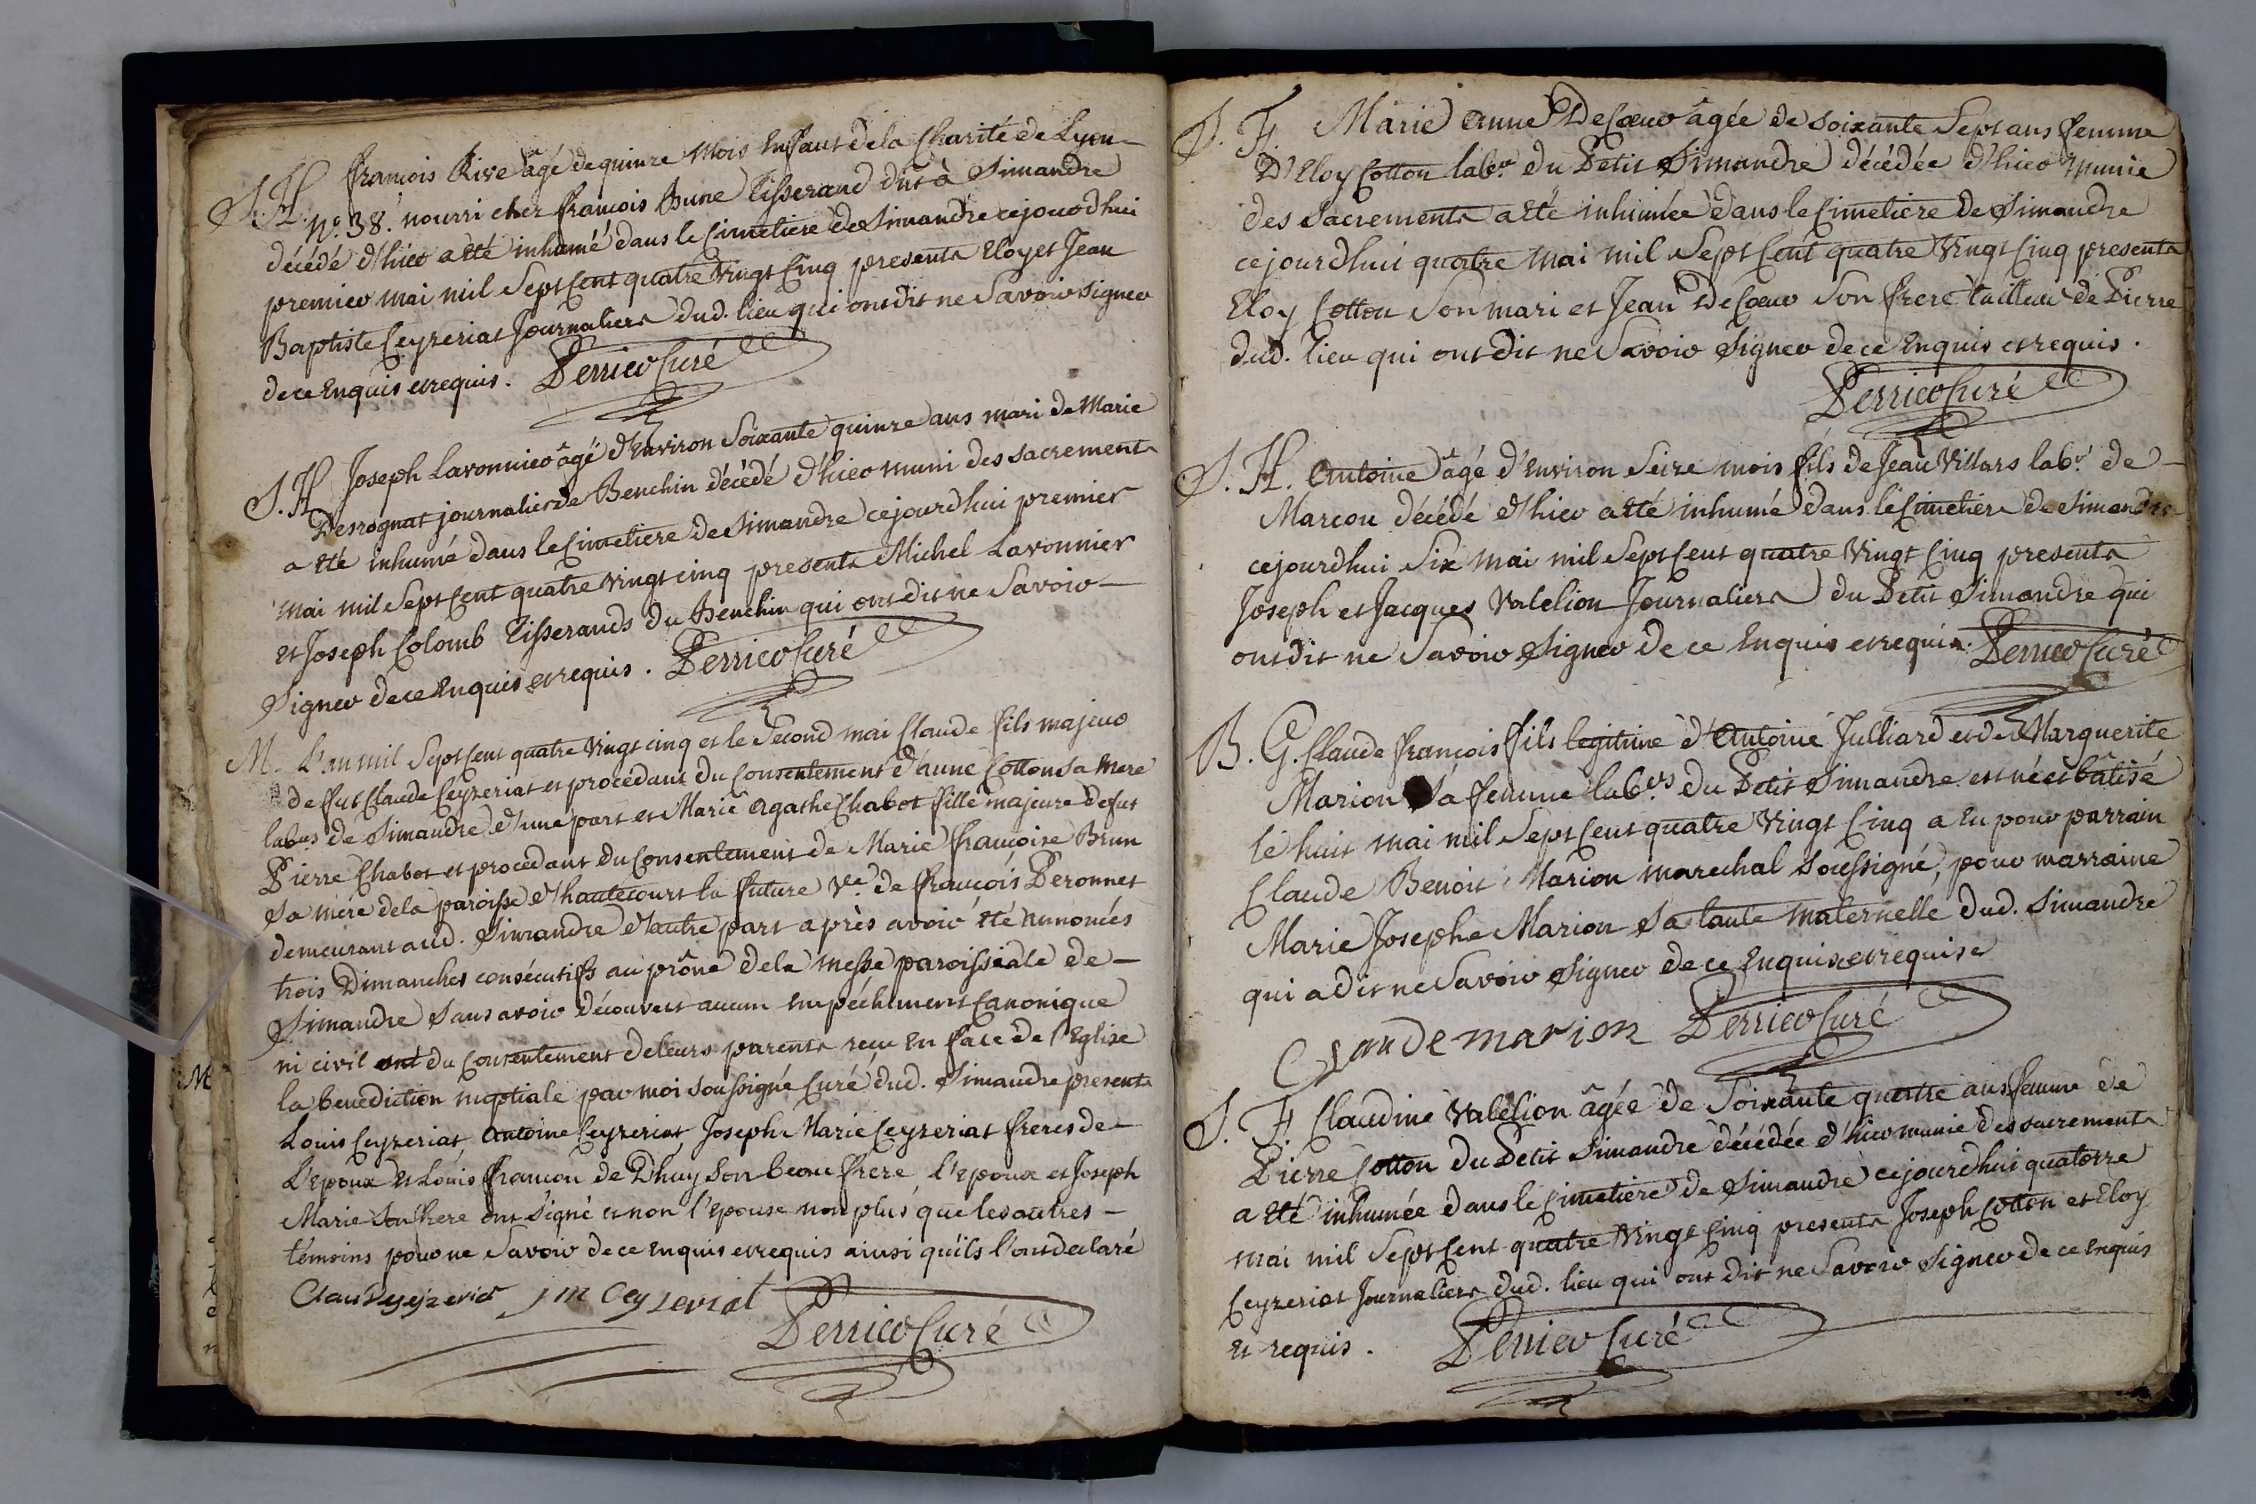 S. H. françois Rive âgé de quinze mois Enfant dela Charité de Lyon
N.° 38. nourri chez françois Brune Tisserand dut à Simandre
décédé d'hier a été inhumé dans le Cimetiere de Simandre cejourdhui
premier mai mil Sept Cent quatre Vingt Cinq presents Eloy et Jean
Baptiste Ceyzeriat Journaliers dud. lieu qui ont dit ne Savoir signer
de ce Enquis et requis. Perrier Curé
S. H. Joseph Lavonnier âgé d'Environ Soixante quinze ans mari de Marie
Desrognat journalier de Benchin décédé d'hier muni des sacrements
a été inhumé dans le Cimetiere de Simandre cejourdhui premier
mai mil Sept Cent quatre Vingt cinq presents Michel Lavonnier
et Joseph Colomb Tisserands du Benchin qui ont dit ne Savoir
Signer de ce Enquis et requis. Perrier Curé
M. L'an mil Sept Cent quatre Vingt cinq et le Second mai Claude fils majeur
de fut Claude Ceyzeriat et procédant du Consentement d'anne Cotton sa mere
labrs de Simandre d'une part et Marie Agathe Chabot fille majeure de fut
Pierre Chabot et procédant du Consentement de Marie françoise Brun
Sa mére dela paroisse d'hautecourt la future Ve. de françois Peronnet
demeurant aud. Simandre d'autre part après avoir été annoncés
trois Dimanches consécutifs au prône dela messe paroissiale de
Simandre Sans avoir découvert aucun Empéchement Canonique
ni civil ont du Consentement de leurs parents reçu En face de l'Eglise
la benediction nuptiale par moi soussigné Curé dud. Simandre presents
Louis Ceyzeriat, Antoine Ceyzeriat Joseph Marie Ceyzeriat freres de
L'epoux et Louis françon de Dhuy Son beau frere, l'epoux et Joseph
Marie Son frere ont Signé et non l'epouse non plus que les autres
témoins pour ne Savoir de ce enquis et requis ainsi qu'ils l'ont declaré
Claude Ceyzeriat j m Ceyzeriat
Perrier Curé
S. F. Marie Anne DeCœur âgée de soixante Sept ans femme
D'Eloy Cotton labr. du Petit Simandre décédée d'hier munie
des Sacrements a été inhumée dans le Cimetiere de Simandre
cejourdhui quatre mai mil Sept Cent quatre Vingt Cinq presents
Eloy Cotton Son mari et Jean DeCœur Son frere tailleur de Pierre
dud. lieu qui ont dit ne Savoir Signer de ce Enquis et requis.
Perrier Curé
S. H. Antoine âgé d'Environ Seize mois fils de Jean Villars labr. de
Marcou décédé d'hier a été inhumé dans le Cimetiere de Simandre
cejourdhui Six mai mil Sept Cent quatre Vingt Cinq presents
Joseph et Jacques Valelion Journaliers du Petit Simandre qui
ont dit ne Savoir Signer de ce Enquis et requis. Perrier Curé
B. G. Claude françois fils legitime d'Antoine Julliard et de Marguerite
Marion Sa femme labrs du Petit Simandre est né et bâtisé
le huit mai mil Sept Cent quatre Vingt Cinq a Eu pour parrain
Claude Benoit Marion marechal soussigné, pour marraine
Marie Josephe Marion Sa tante maternelle dud. Simandre
qui a dit ne Savoir Signer de ce Enquise et requise
Claude marion Perrier Curé
S. F. Claudine Valelion âgée de Soixante quatre ans femme de
Pierre Cotton du Petit Simandre décédée d'hier munie des sacrements
a été inhumée dans le Cimetiere de Simandre cejourdhui quatorze
mai mil Sept Cent quatre Vingt Cinq presents Joseph Cotton et Eloy
Ceyzeriat Journaliers dud. lieu qui ont dit ne Savoir Signer de ce Enquis
et requis. Perrier Curé